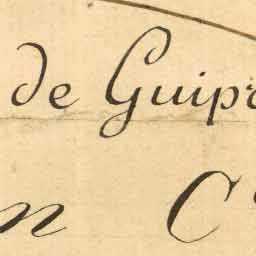 de Guip
n C